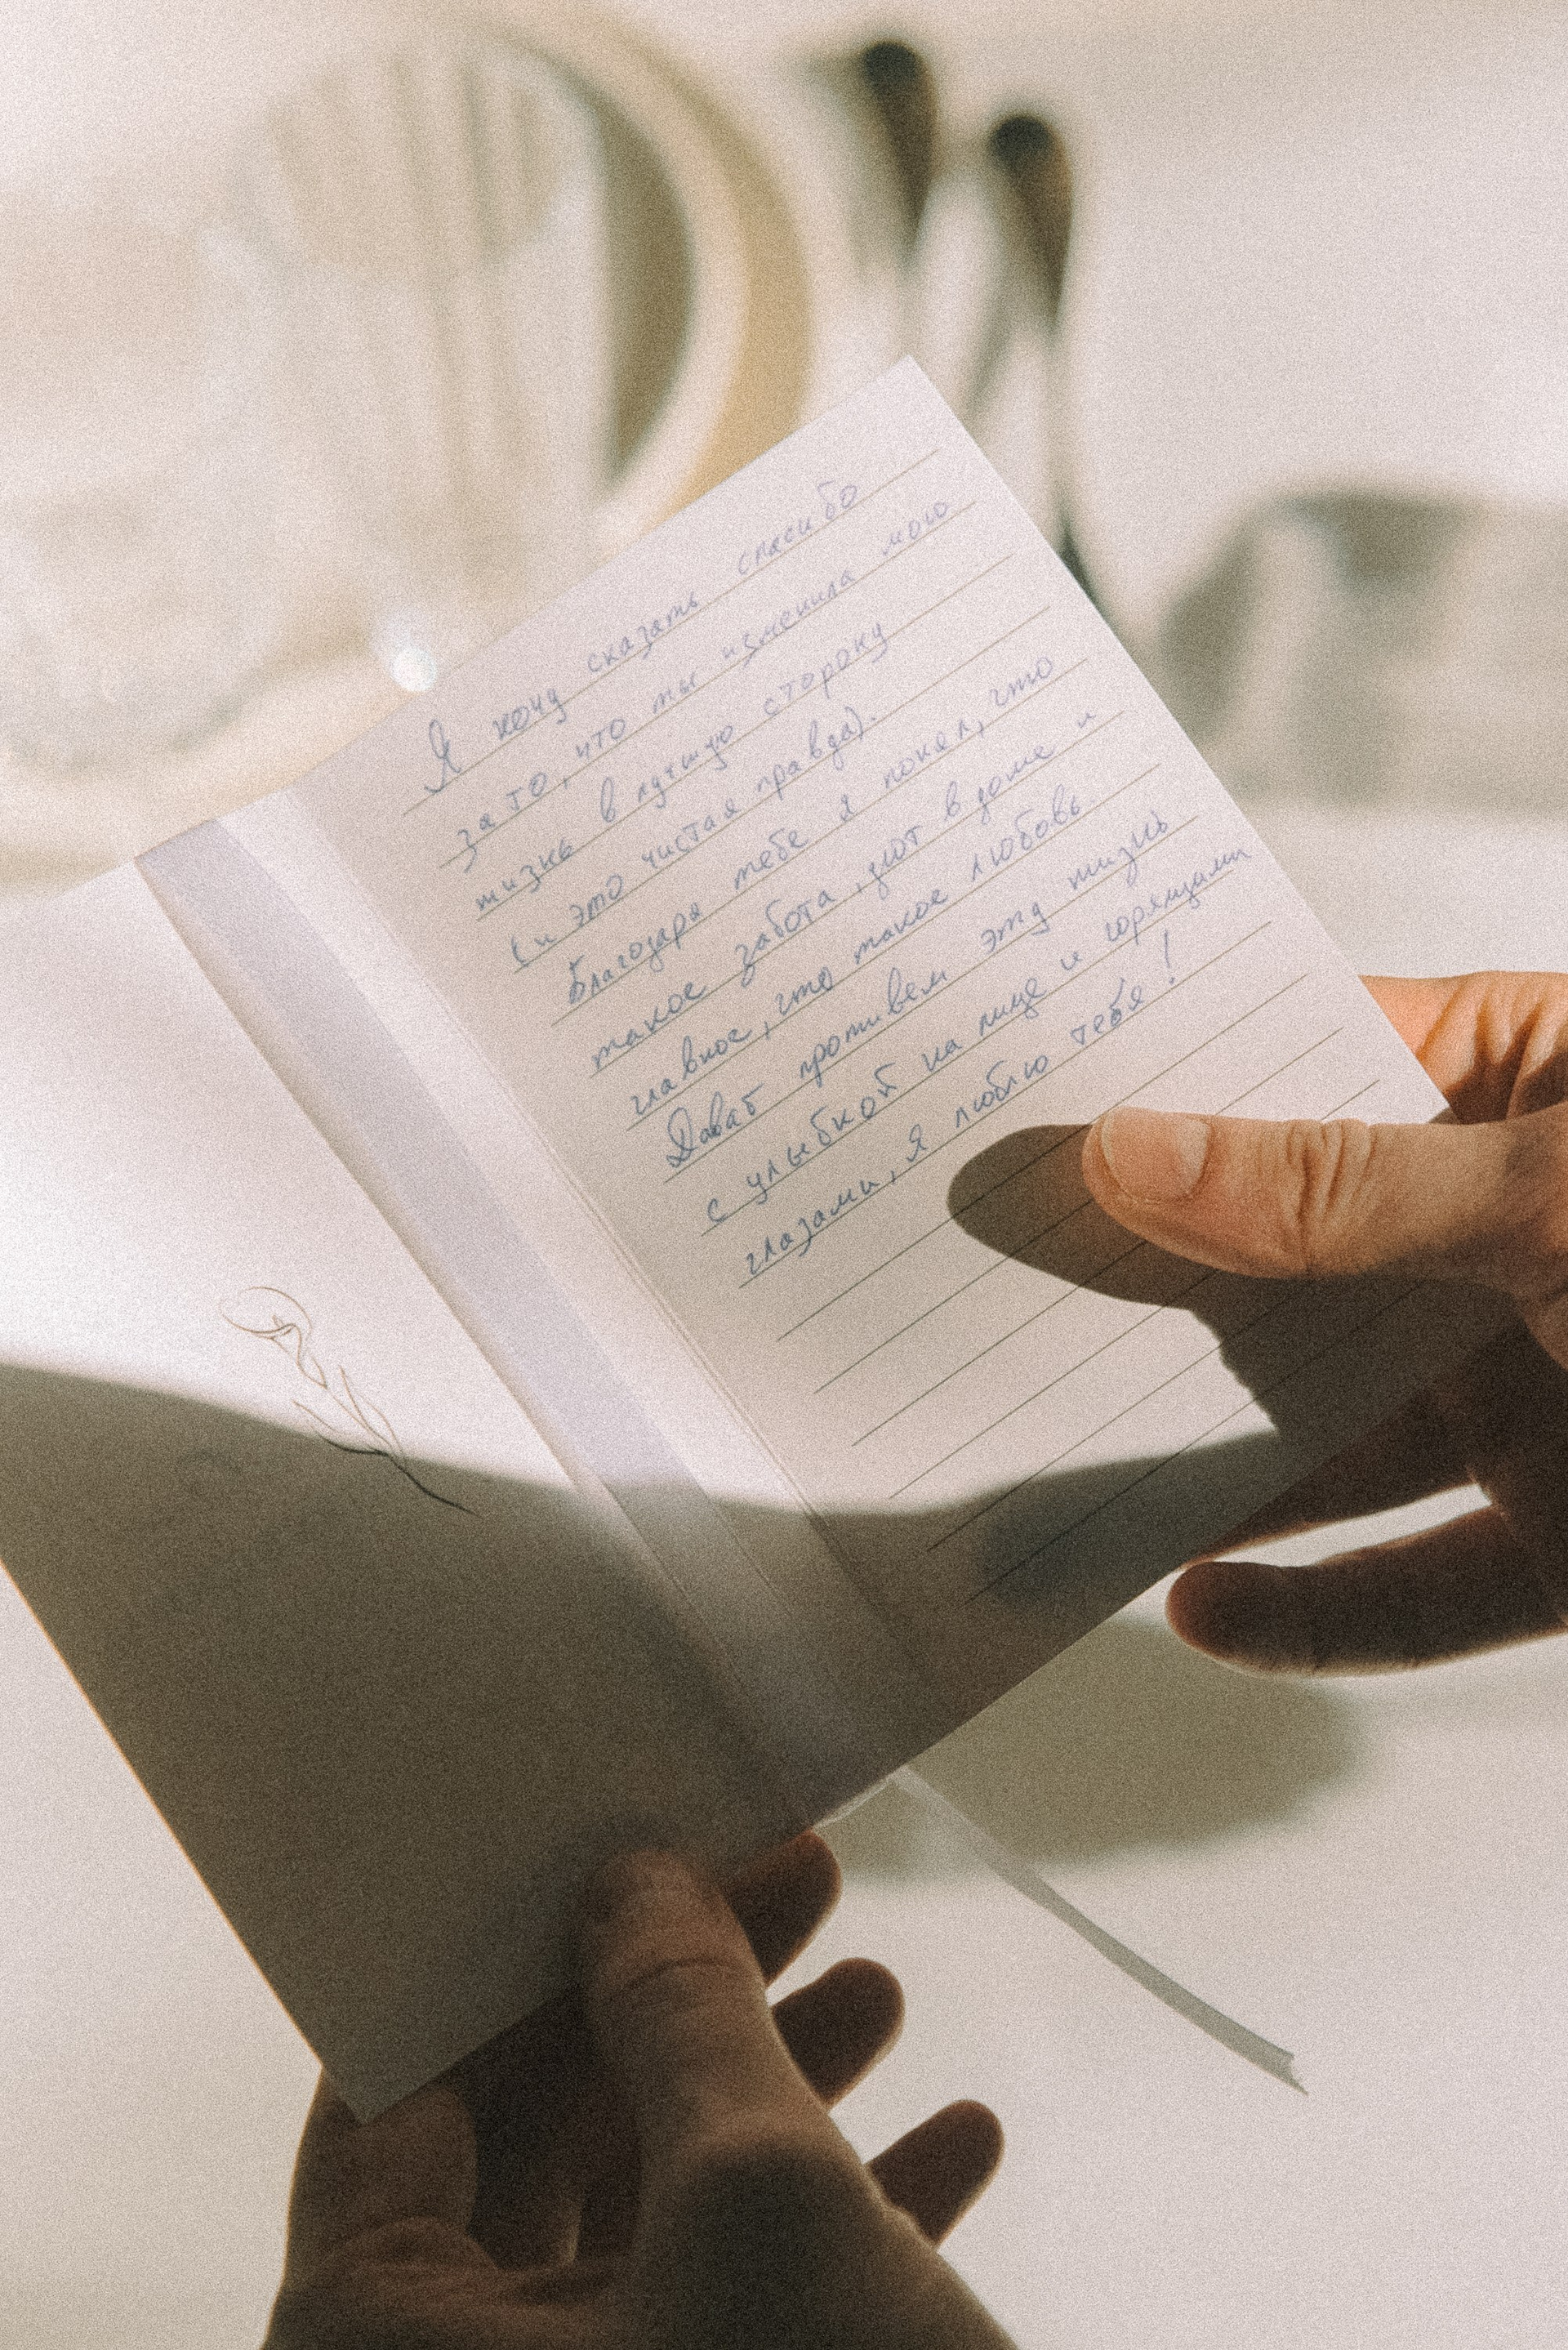 Я хочу сказать спасибо
за то, что ты изменила мою
жизнь в лучшую сторону
(и это чистая правда).
Благодаря тебе я понял, что
такое забота, уют в доме и
главное, что такое любовь
Давай проживем эту жизнь
с улыбкой на лице и горящими
глазами, я люблю тебя!